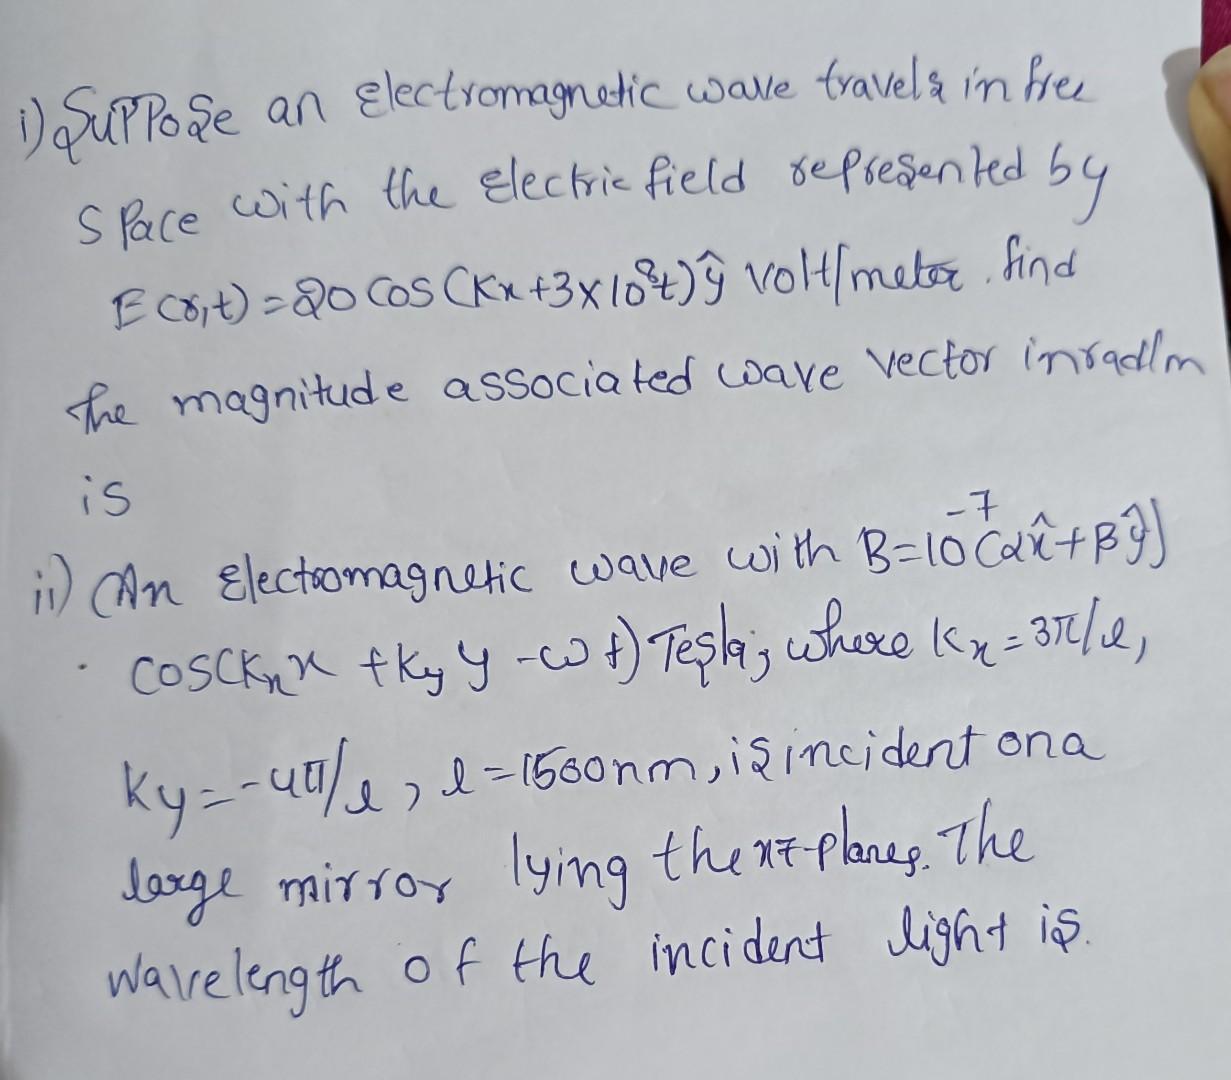 i) Suppose an Electromagnetic wave travels in free
Space with the Electric field represented by
E(r,t) = 20 cos (kx+3x10⁸t)ŷ volt/meter. find
the magnitude associated wave vector in rad/m
is
ii) An Electromagnetic wave with B=10⁻⁷(αx̂+βŷ)
cos(kₓx +k_y y -ωt) Tesla; where kₓ=3π/l,
ky=-4π/l, l=1500nm, is incident on a
large mirror lying the xz-planes. The
wavelength of the incident light is.